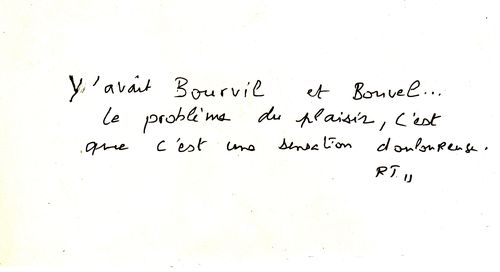 Y'avait Bourvil et Bouvel...
le problème du plaisir, c'est
que c'est une sensation douloureuse.
RT,,